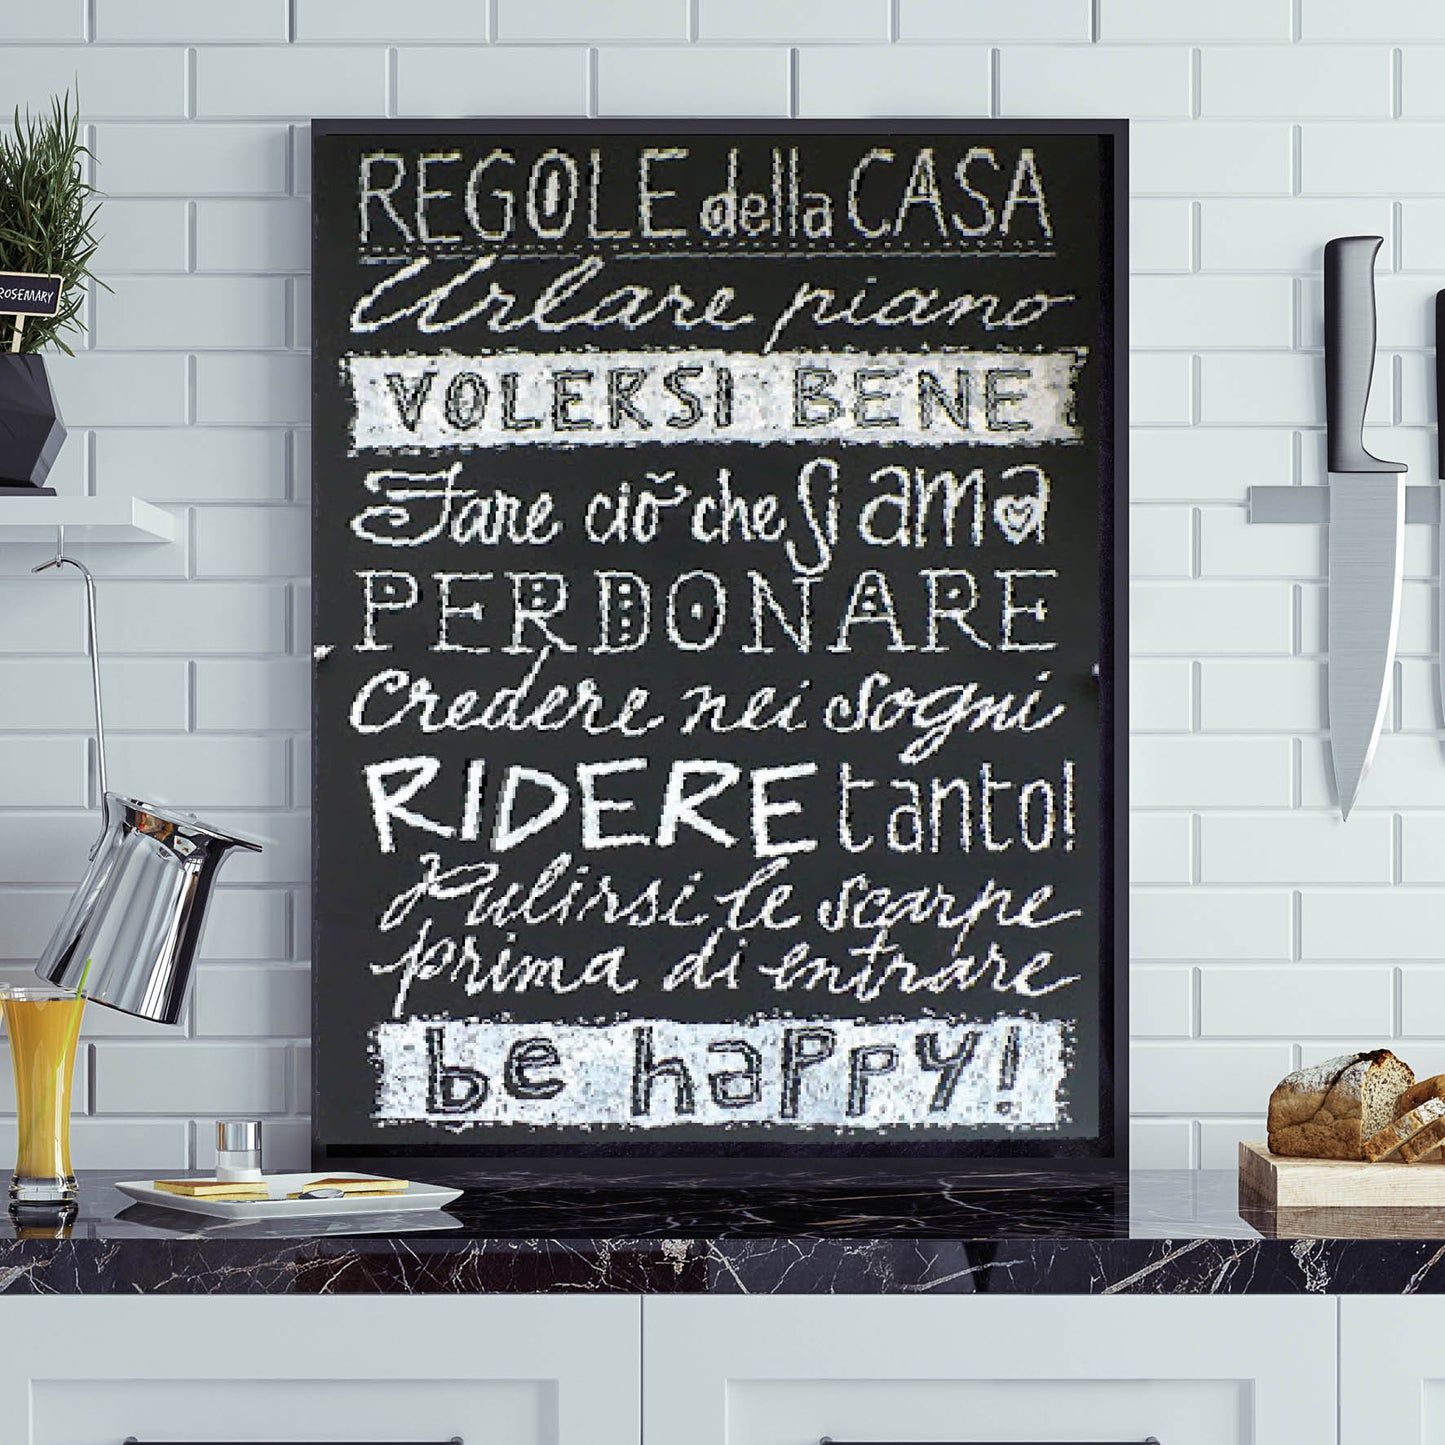 REGOLE della CASA
Urlare piano
VOLERSI BENE
Fare ciò che Si ama
PERDONARE
Credere nei Sogni
RIDERE tanto!
Pulirsi le scarpe
prima di entrare
be happy!
ROSEMARY